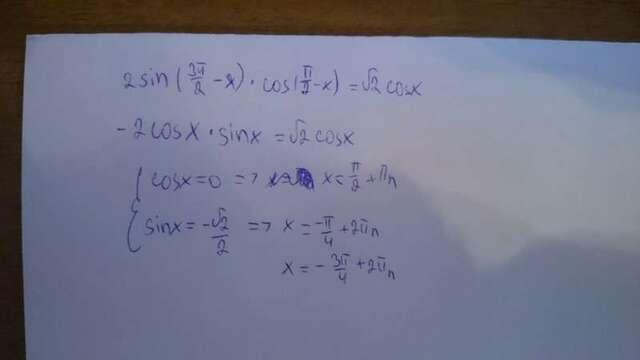 2sin(3π/2 - x) · cos(π/2 - x) = √2 cosx
-2cosx · sinx = √2 cosx
{ cosx = 0 => x = π/2 + πn
{ sinx = -√2/2 => x = -π/4 + 2πn
x = -3π/4 + 2πn